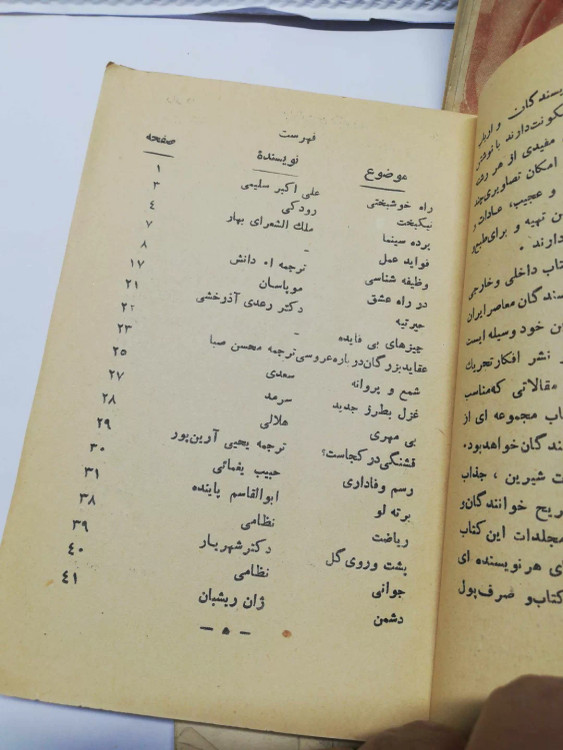 یسندگان و اروپا
سکونت‌دارند با نوشتن
مفیدی از هر رشته
امکان تصاویری چند
و عجیب، عادات و
ن تهیه و برای طبع و
دارند.
کتاب داخلی و خارجی
سندگان معاصر ایران
ن خود وسیله ایست
نشر افکار تحریك
مقالاتی که مناسب
اب مجموعه ای از
ندگان خواهد بود.
ت شیرین ، جذاب
ریح خوانندگان و
مجلدات این کتاب
ای هر نویسنده ای
کتاب و صرف پول
فهرست
موضوع نویسندهٔ صفحه
راه خوشبختی علی اکبر سلیمی ۱
نیکبخت رودکی ۳
پرده سینما ملك الشعرای بهار ۴
فواید عمل - ۷
وظیفه شناسی ترجمه اه دانش ۸
در راه عشق موپاسان ۱۷
حیرتیه دکتر رعدی آذرخشی ۲۱
چیزهای بی فایده - ۲۲
عقاید بزرگان در باره عروسی ترجمه محسن صبا ۲۳
شمع و پروانه سعدی ۲۵
غزل بطرز جدید سرمد ۲۷
بی مهری هلالی ۲۸
قشنگی در کجاست؟ ترجمه یحیی آرین‌پور ۲۹
رسم وفاداری حبیب یغمائی ۳۰
برته لو ابوالقاسم پاینده ۳۱
ریاضت نظامی ۳۸
پشت و روی گل دکتر شهریار ۳۹
جوانی نظامی ۴۰
دشمن ژان ریشپان ۴۱
- ۵ -